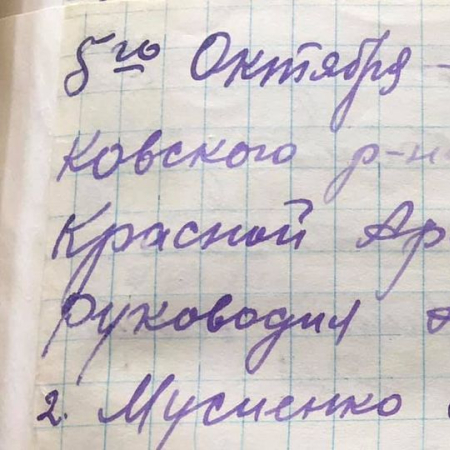 5го Октября -
ковского р-н
Красной Ар
руководил
2. Мусиенко